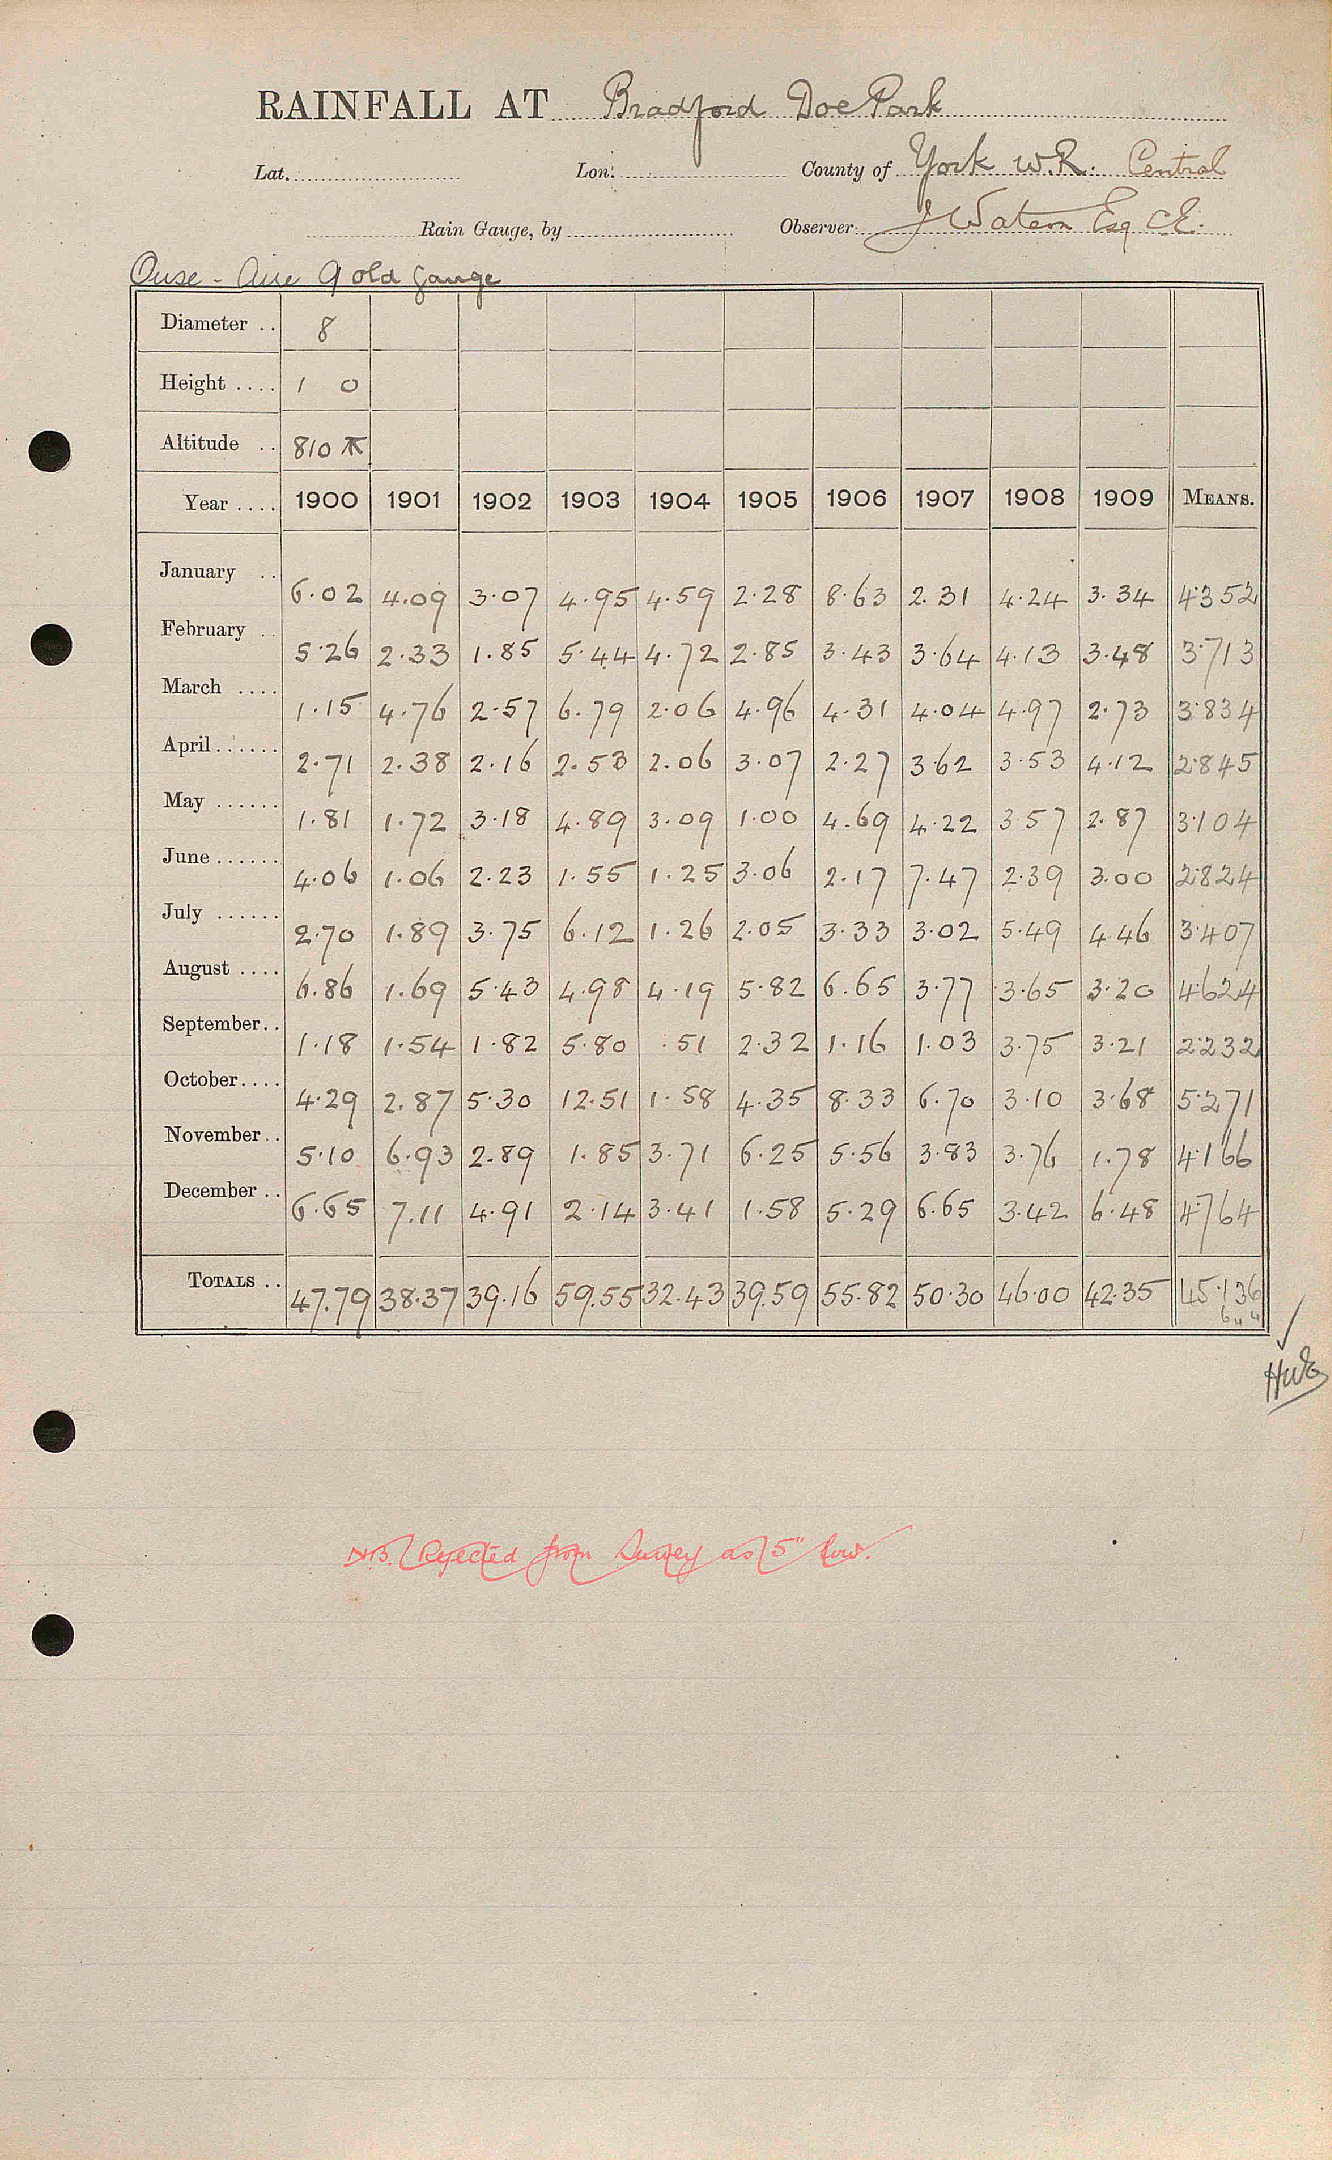 RAINFALL AT Bradford Doe Park
Lat. Lon. County of York W.R. Central
Rain Gauge, by Observer J Watson Esq C.E.
Ouse - Aire 9 old gauge
Diameter .. 8
Height .... 1 0
Altitude .. 810
Year .... 1900 1901 1902 1903 1904 1905 1906 1907 1908 1909 MEANS.
January .. 6.02 4.09 3.07 4.95 4.59 2.28 8.63 2.31 4.24 3.34 4.352
February .. 5.26 2.33 1.85 5.44 4.72 2.85 3.43 3.64 4.13 3.48 3.713
March .... 1.15 4.76 2.57 6.79 2.06 4.96 4.31 4.04 4.97 2.73 3.834
April ...... 2.71 2.38 2.16 2.53 2.06 3.07 2.27 3.62 3.53 4.12 2.845
May ...... 1.81 1.72 3.18 4.89 3.09 1.00 4.69 4.22 3.57 2.87 3.104
June ...... 4.06 1.06 2.23 1.55 1.25 3.06 2.17 7.47 2.39 3.00 2.824
July ...... 2.70 1.89 3.75 6.12 1.26 2.05 3.33 3.02 5.49 4.46 3.407
August .... 6.86 1.69 5.43 4.98 4.19 5.82 6.65 3.77 3.65 3.20 4.624
September .. 1.18 1.54 1.82 5.80 .51 2.32 1.16 1.03 3.75 3.21 2.232
October .... 4.29 2.87 5.30 12.51 1.58 4.35 8.33 6.70 3.10 3.68 5.271
November .. 5.10 6.93 2.89 1.85 3.71 6.25 5.56 3.83 3.76 1.78 4.166
December .. 6.65 7.11 4.91 2.14 3.41 1.58 5.29 6.65 3.42 6.48 4.764
TOTALS .. 47.79 38.37 39.16 59.55 32.43 39.59 55.82 50.30 46.00 42.35 45.136
N.B. Rejected from Survey as 5" low.